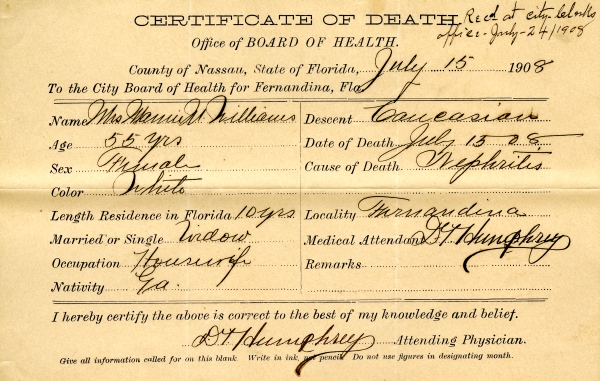 CERTIFICATE OF DEATH.
Rec'd at city clerks
office - July - 24/1908
Office of BOARD OF HEALTH.
County of Nassau, State of Florida, July 15 1908
To the City Board of Health for Fernandina, Fla.
Name Mrs Williams
Age 55 yrs
Sex Female
Color White
Length Residence in Florida 10 yrs
Married or Single Widow
Occupation Housewife
Nativity Ga.
Descent Caucasian
Date of Death July 15 08
Cause of Death Nephritis
Locality Fernandina
Medical Attendant D T Humphrey
Remarks
I hereby certify the above is correct to the best of my knowledge and belief.
D T Humphrey Attending Physician.
Give all information called for on this blank. Write in ink, not pencil. Do not use figures in designating month.